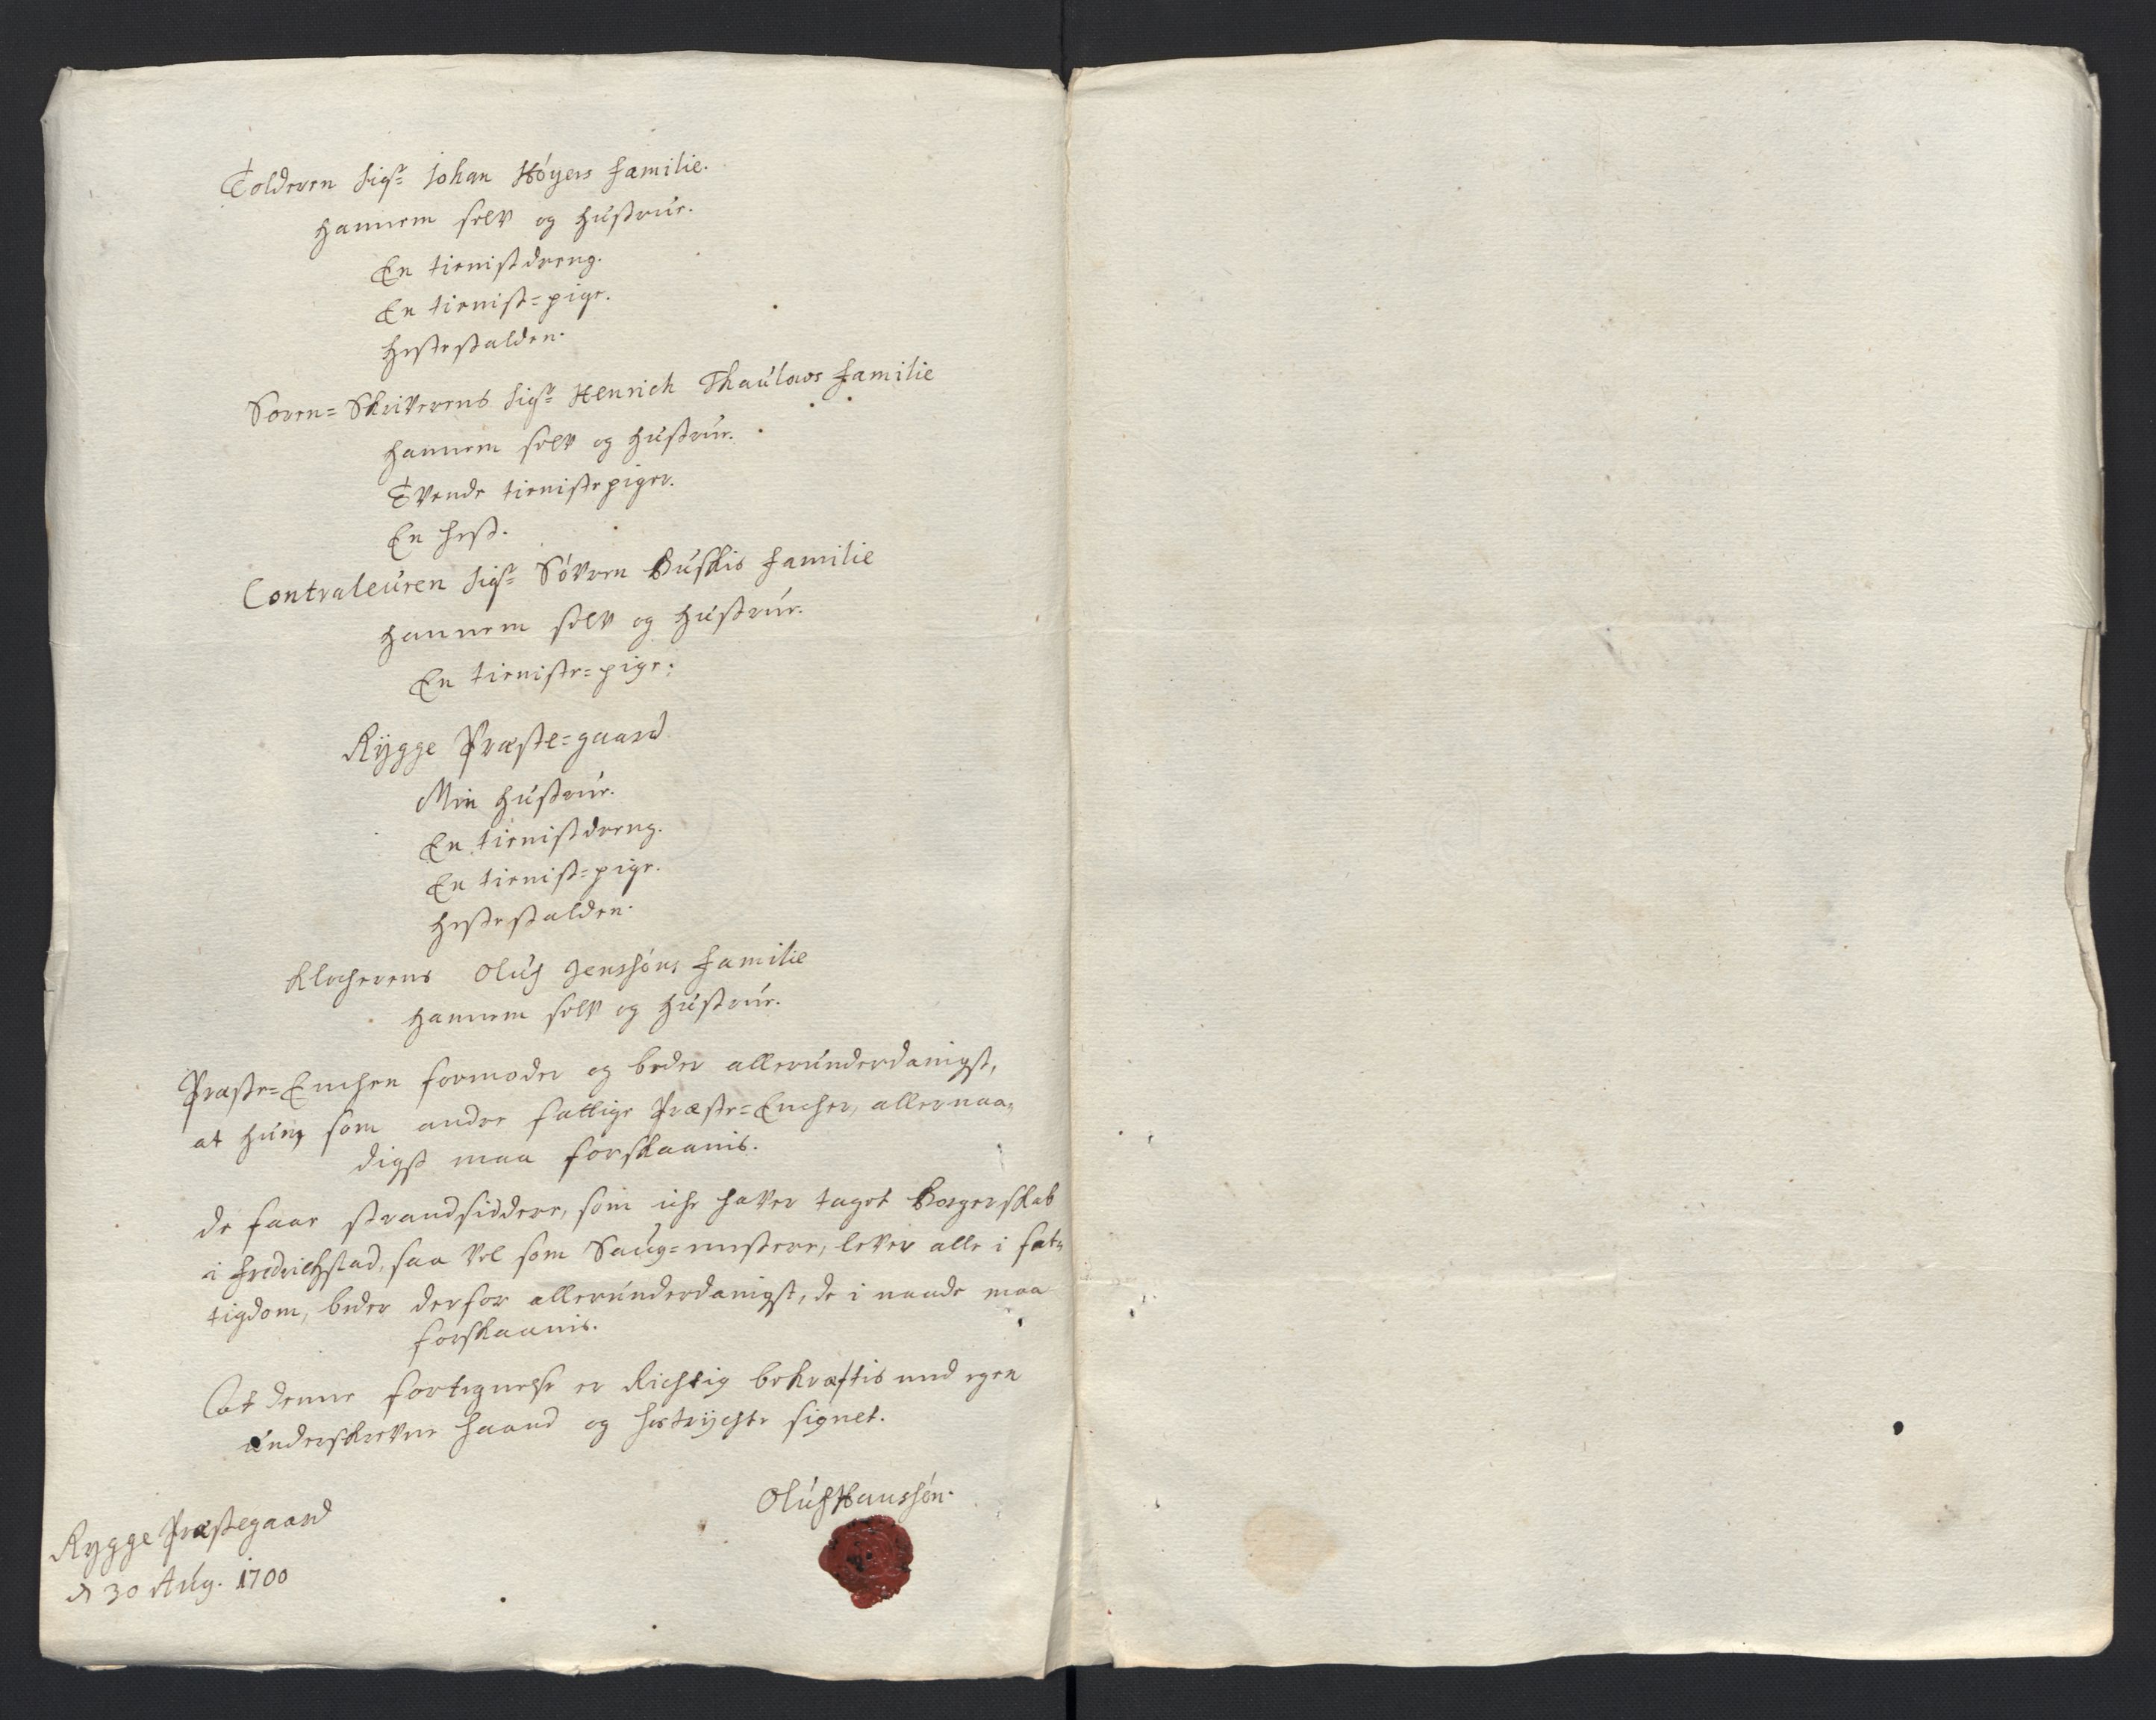 Tolderen Sigr. Johan Høyers familie.
hannem selv og hustrue.
En tienistdreng.
En tienist=pige.
hestestalden.
Soren=Skriverens Sigr. Henrich Thaulows familie
hannem selv og hustrue.
Tvende tienistepiger.
En hest.
Contraleuren Sigr. Søvren Buskis familie
hannem selv og hustrue.
En tieniste=pige.
Rygge Præste=gaard
Min hustrue.
En tienistdreng.
En tienist=pige.
hestestalden.
Klocherens Oluf Jenssøns familie
hannem selv og hustrue.
Præste=Enchen formoder og beder allerunderdanigst,
at hun, som andre fattige Præste=Encher, allernaa,,
digst maa forskaanis.
de faae strandsiddere, som iche haver taget Borgerskab
i Fredrichstad, saa vel som Saug=mestere, lever alle i fat,,
tigdom, beder derfor allerunderdanigst, de i naade maa
forskaanis.
At denne fortegnelse er Richtig bekræftis med egen
underskrevne haand og hostrychte signet.
Oluf Hanssøn.
Rygge Præstegaard
d 30 Aug. 1700